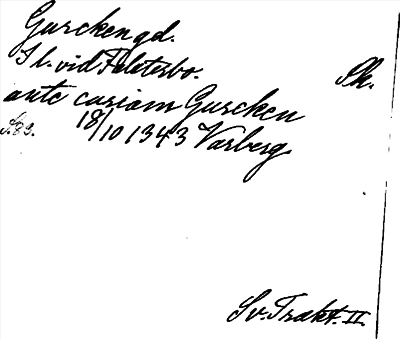 Gurckengd.
I l. vid Falsterbo. Sk.
ante curiam Gurcken
S. 89. 18/10 1343 Varberg
Sv. Trakt. II.